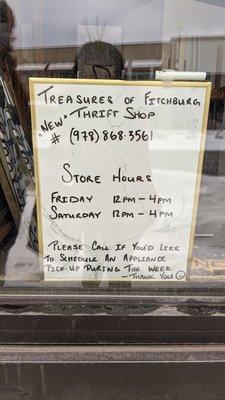 Treasures of Fitchburg
Thrift Shop
"New" # (978) 868.3561
Store Hours
Friday 12pm - 4pm
Saturday 12pm - 4pm
Please Call If You'd Like
To Schedule An Appliance
Pick-Up During The Week.
- Thank You ☺